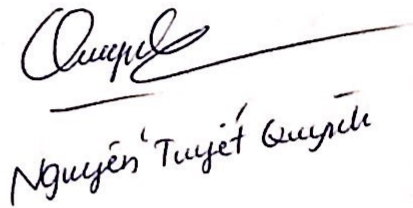 Quỳnh
Nguyễn Tuyết Quỳnh